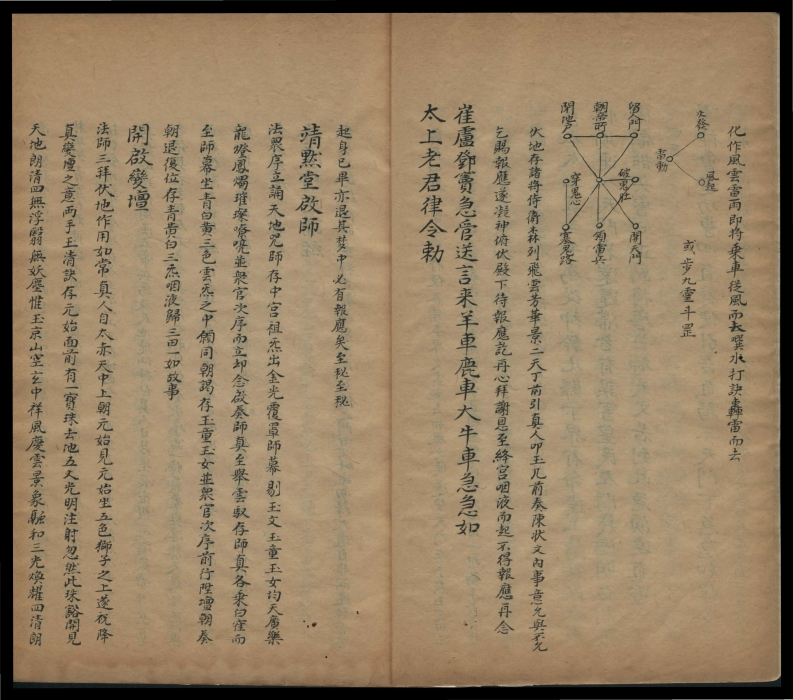 化作風雲雷雨即將乘車從風而去噀水打訣轟雷而去
火發
雷動
風起
或步九靈斗罡
留人門
朝帝所
閉鬼戶
破鬼肚
穿鬼心
開天門
領雷兵
塞鬼路
伏地存諸將侍衛森列飛雲芳華景二天丁前引真人叩玉几前奏陳狀文內事意允與不允
乞賜報應遂凝神俯伏殿下待報應訖再心拜謝恩至絳宮咽液而起不得報應再念
崔盧鄧竇急管送言来羊車鹿車大牛車急急如
太上老君律令勅
起身已畢亦退其梦中必有報應矣至秘至秘
靖默堂啟師
法眾序立誦天地咒師存中宮祖炁出金光覆罩師幕剔玉文玉童玉女均天廣樂
龍燈鳳燭璀璨嘹喨並眾官次序而立却念啟奏師真至舉雲馭存師真各乘白寉而
至師幕坐青白黃三色雲炁之中領同朝謁存玉童玉女並眾官次序前行陞壇朝奏
朝退復位存青黃白三炁咽液歸三田一如故事
開啟變壇
法師三拜伏地作用如常真人自太赤天中上朝元始見元始坐五色獅子之上遂祝降
真變壇之意兩手玉清訣存元始面前有一寶珠去地五丈光明注射忽然此珠豁開見
天地朗清四無浮翳無妖塵惟玉京山空玄中祥風慶雲景象融和三光煥耀四清朗